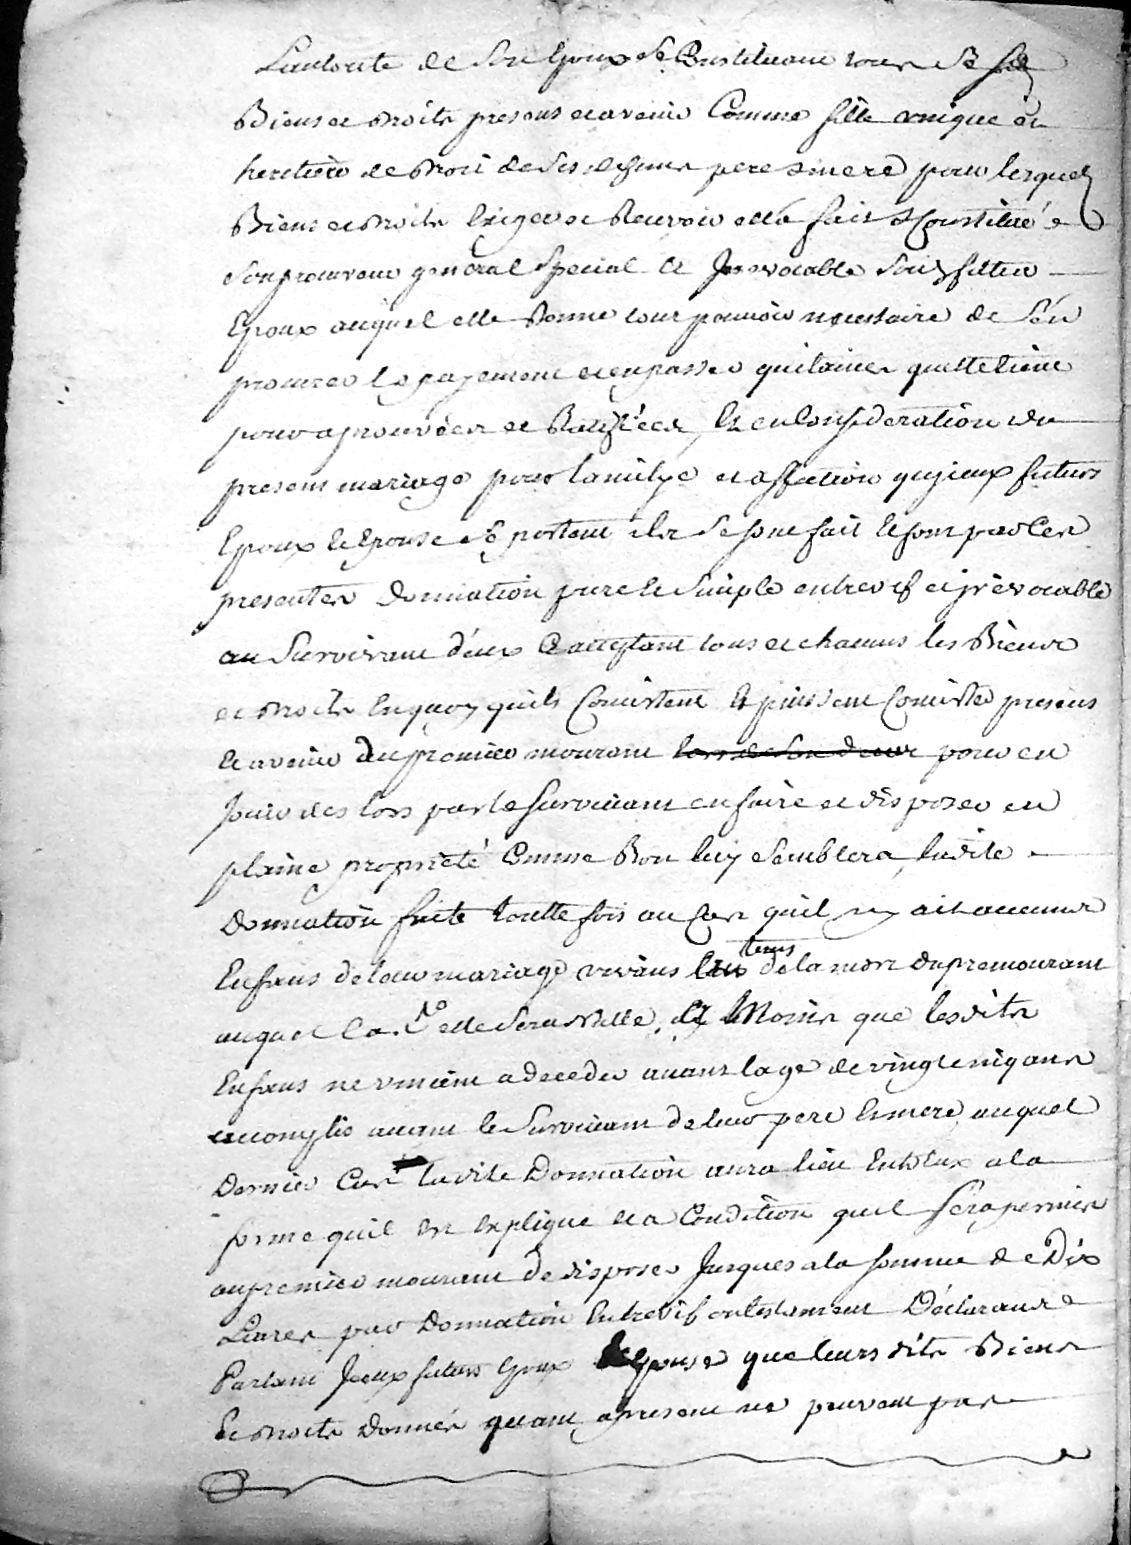 Lautorité de Son Epoux Se Constituant tous Se Sds
Biens et droits presens et avenir Comme fille unique et
heritiere de droit de Ses defunts pere & mere pour lesquels
Biens et droits Exiger et Recevoir elle fait & Constitue
Son procureur general Special et Irrevocable Son futur
Epoux auquel elle donne tout pouvoir necessaire de S'en
procurer le payement et en passer quitances quelle tient
pour aprouvées et Ratifiées, Et en Consideration du
present mariage pour lamitye et affection qu'jceux futurs
Epoux et Epouse Se portent ils Se sont fait et font par Ces
presentes donnation pure et Simple entrevif et jrevocable
au Survivant d'eux Ce acceptant tous et chacuns les Biens
et droits En quoy qu'ils Consistent et puissent Consister presens
et avenir du premier mourant lors de Son deces pour en
Jouir des lors par le Survivant en faire et disposer en
plaine proprieté Comme Bon luy Semblera, ladite
Donnation faite touttefois au Cas qu'il ny ait aucuns
Enfans de leur mariage vivans tems de la mort du premourant
auquel Cas elle Sera Nulle, Et Moins que lesdits
Enfans ne viniènt a deceder avant lage de vingt cinq ans
accomplis avant le Survivant de leur pere et mere, auquel
Dernier Cas ladite Donnation aura lieu Entreux a la
forme quil Est Expliqué et a Condition quil Sera permis
au premier mourant de disposer Jusques a la somme de Dix
Livres par Donnation Entrevif ou testament Déclarans
Partant Jceux futurs Epoux et Epouse que leurs dits Biens
Et droits donnés quant apresent ne peuvent pas